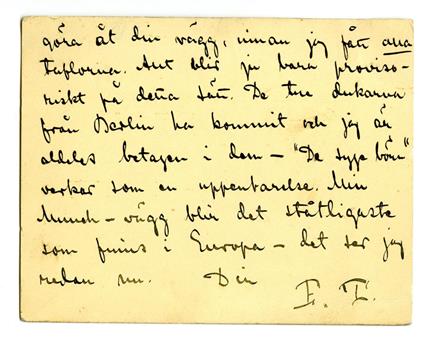 göra åt din vägg, innan jag fått ana
taflorna. Allt blir ju bara proviso-
riskt på detta sätt. De tre dukarna
från Berlin ha kommit och jag är
aldeles betagen i dem – "De syge börn"
verkar som en uppenbarelse. Min
Munch-vägg blir det ståtligaste
som finns i Europa – det ser jag
redan nu. Din
E. T.